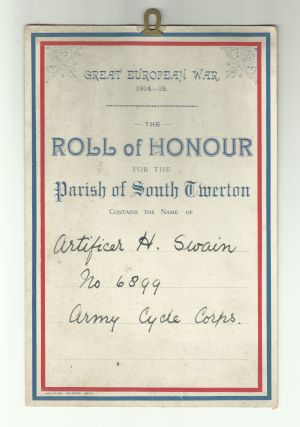 GREAT EUROPEAN WAR,
1914—15.
— THE —
ROLL of HONOUR
FOR THE
Parish of South Twerton
CONTAINS THE NAME OF
Artificer H. Swain
No 6899
Army Cycle Corps.